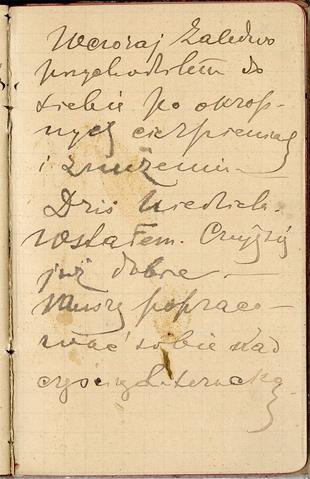 Wczoraj zaledwo
przychodziłem do
siebie po okrop-
nych cierpieniach
i znużeniu. —
Dziś niedziela.
Wstałem. Czuję się
już dobrze —
Muszę popraco-
wać sobie nad